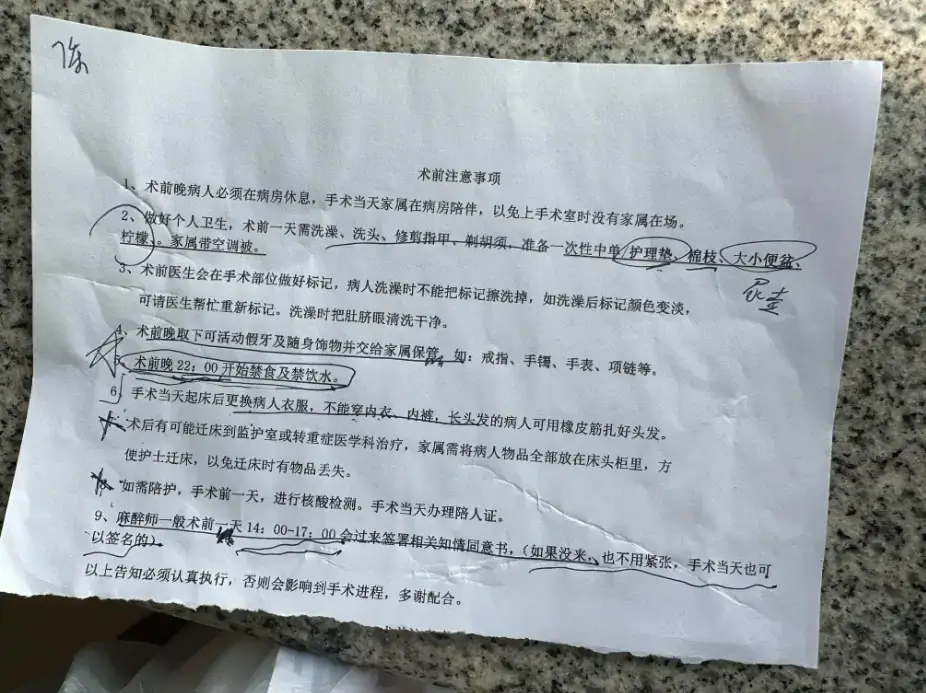 术前注意事项
1、术前晚病人必须在病房休息，手术当天家属在病房陪伴，以免上手术室时没有家属在场。
2、做好个人卫生，术前一天需洗澡、洗头、修剪指甲、剃胡须，准备一次性中单、护理垫、棉枝、大小便盆、
柠檬、。家属带空调被。
3、术前医生会在手术部位做好标记，病人洗澡时不能把标记擦洗掉，如洗澡后标记颜色变淡，
可请医生帮忙重新标记。洗澡时把肚脐眼清洗干净。
4、术前晚取下可活动假牙及随身饰物并交给家属保管，如：戒指、手镯、手表、项链等。
术前晚 22：00 开始禁食及禁饮水。
6、手术当天起床后更换病人衣服，不能穿内衣、内裤，长头发的病人可用橡皮筋扎好头发。
术后有可能迁床到监护室或转重症医学科治疗，家属需将病人物品全部放在床头柜里，方
便护士迁床，以免迁床时有物品丢失。
如需陪护，手术前一天，进行核酸检测。手术当天办理陪人证。
9、麻醉师一般术前一天 14：00-17：00 会过来签署相关知情同意书，（如果没来，也不用紧张，手术当天也可
以签名的）
以上告知必须认真执行，否则会影响到手术进程，多谢配合。